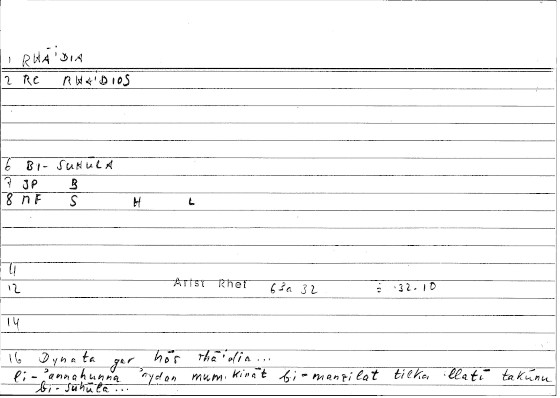 1 RHĀ'DIA
2 RC RHA'DIOS
6 BI- SUHŪLA
7 JP B
8 MF S H L
11
12 Arist Rhet 63a 32 ÷ 32.10
14
16 Dynata gar hōs rhā'idia...
li-'annahunna 'aydon mumkināt bi-manzilat tilka llatī takūnu
bi-suhūla...